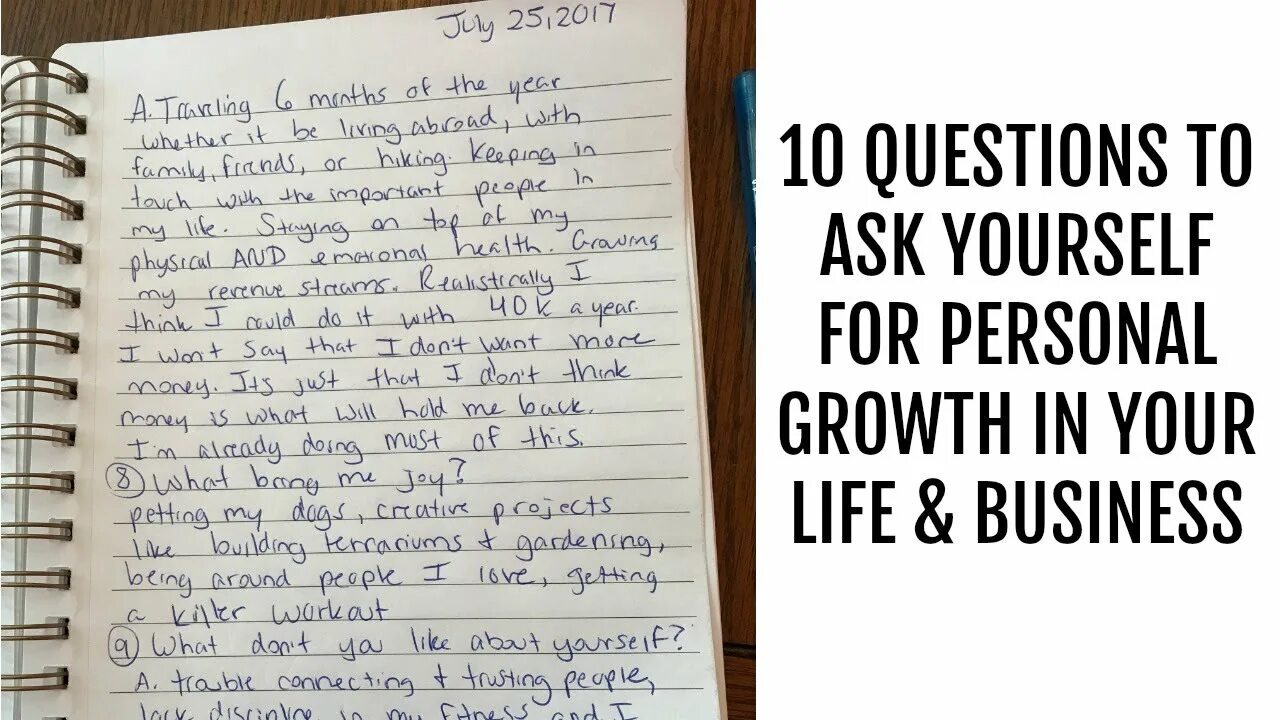 July 25, 2017
A. Traveling 6 months of the year
whether it be living abroad, with
family, friends, or hiking. Keeping in
touch with the important people in
my life. Staying on top of my
physical AND emotional health. Growing
my revenue streams. Realistically I
think I could do it with 40K a year.
I won't say that I don't want more
money. Its just that I don't think
money is what will hold me back.
I'm already doing most of this.
8 What bring me joy?
petting my dogs, creative projects
like building terrariums & gardening,
being around people I love, getting
a killer workout
9 What don't you like about yourself?
A. trouble connecting & trusting people,
lack discipline in my fitness and I
10 QUESTIONS TO
ASK YOURSELF
FOR PERSONAL
GROWTH IN YOUR
LIFE & BUSINESS